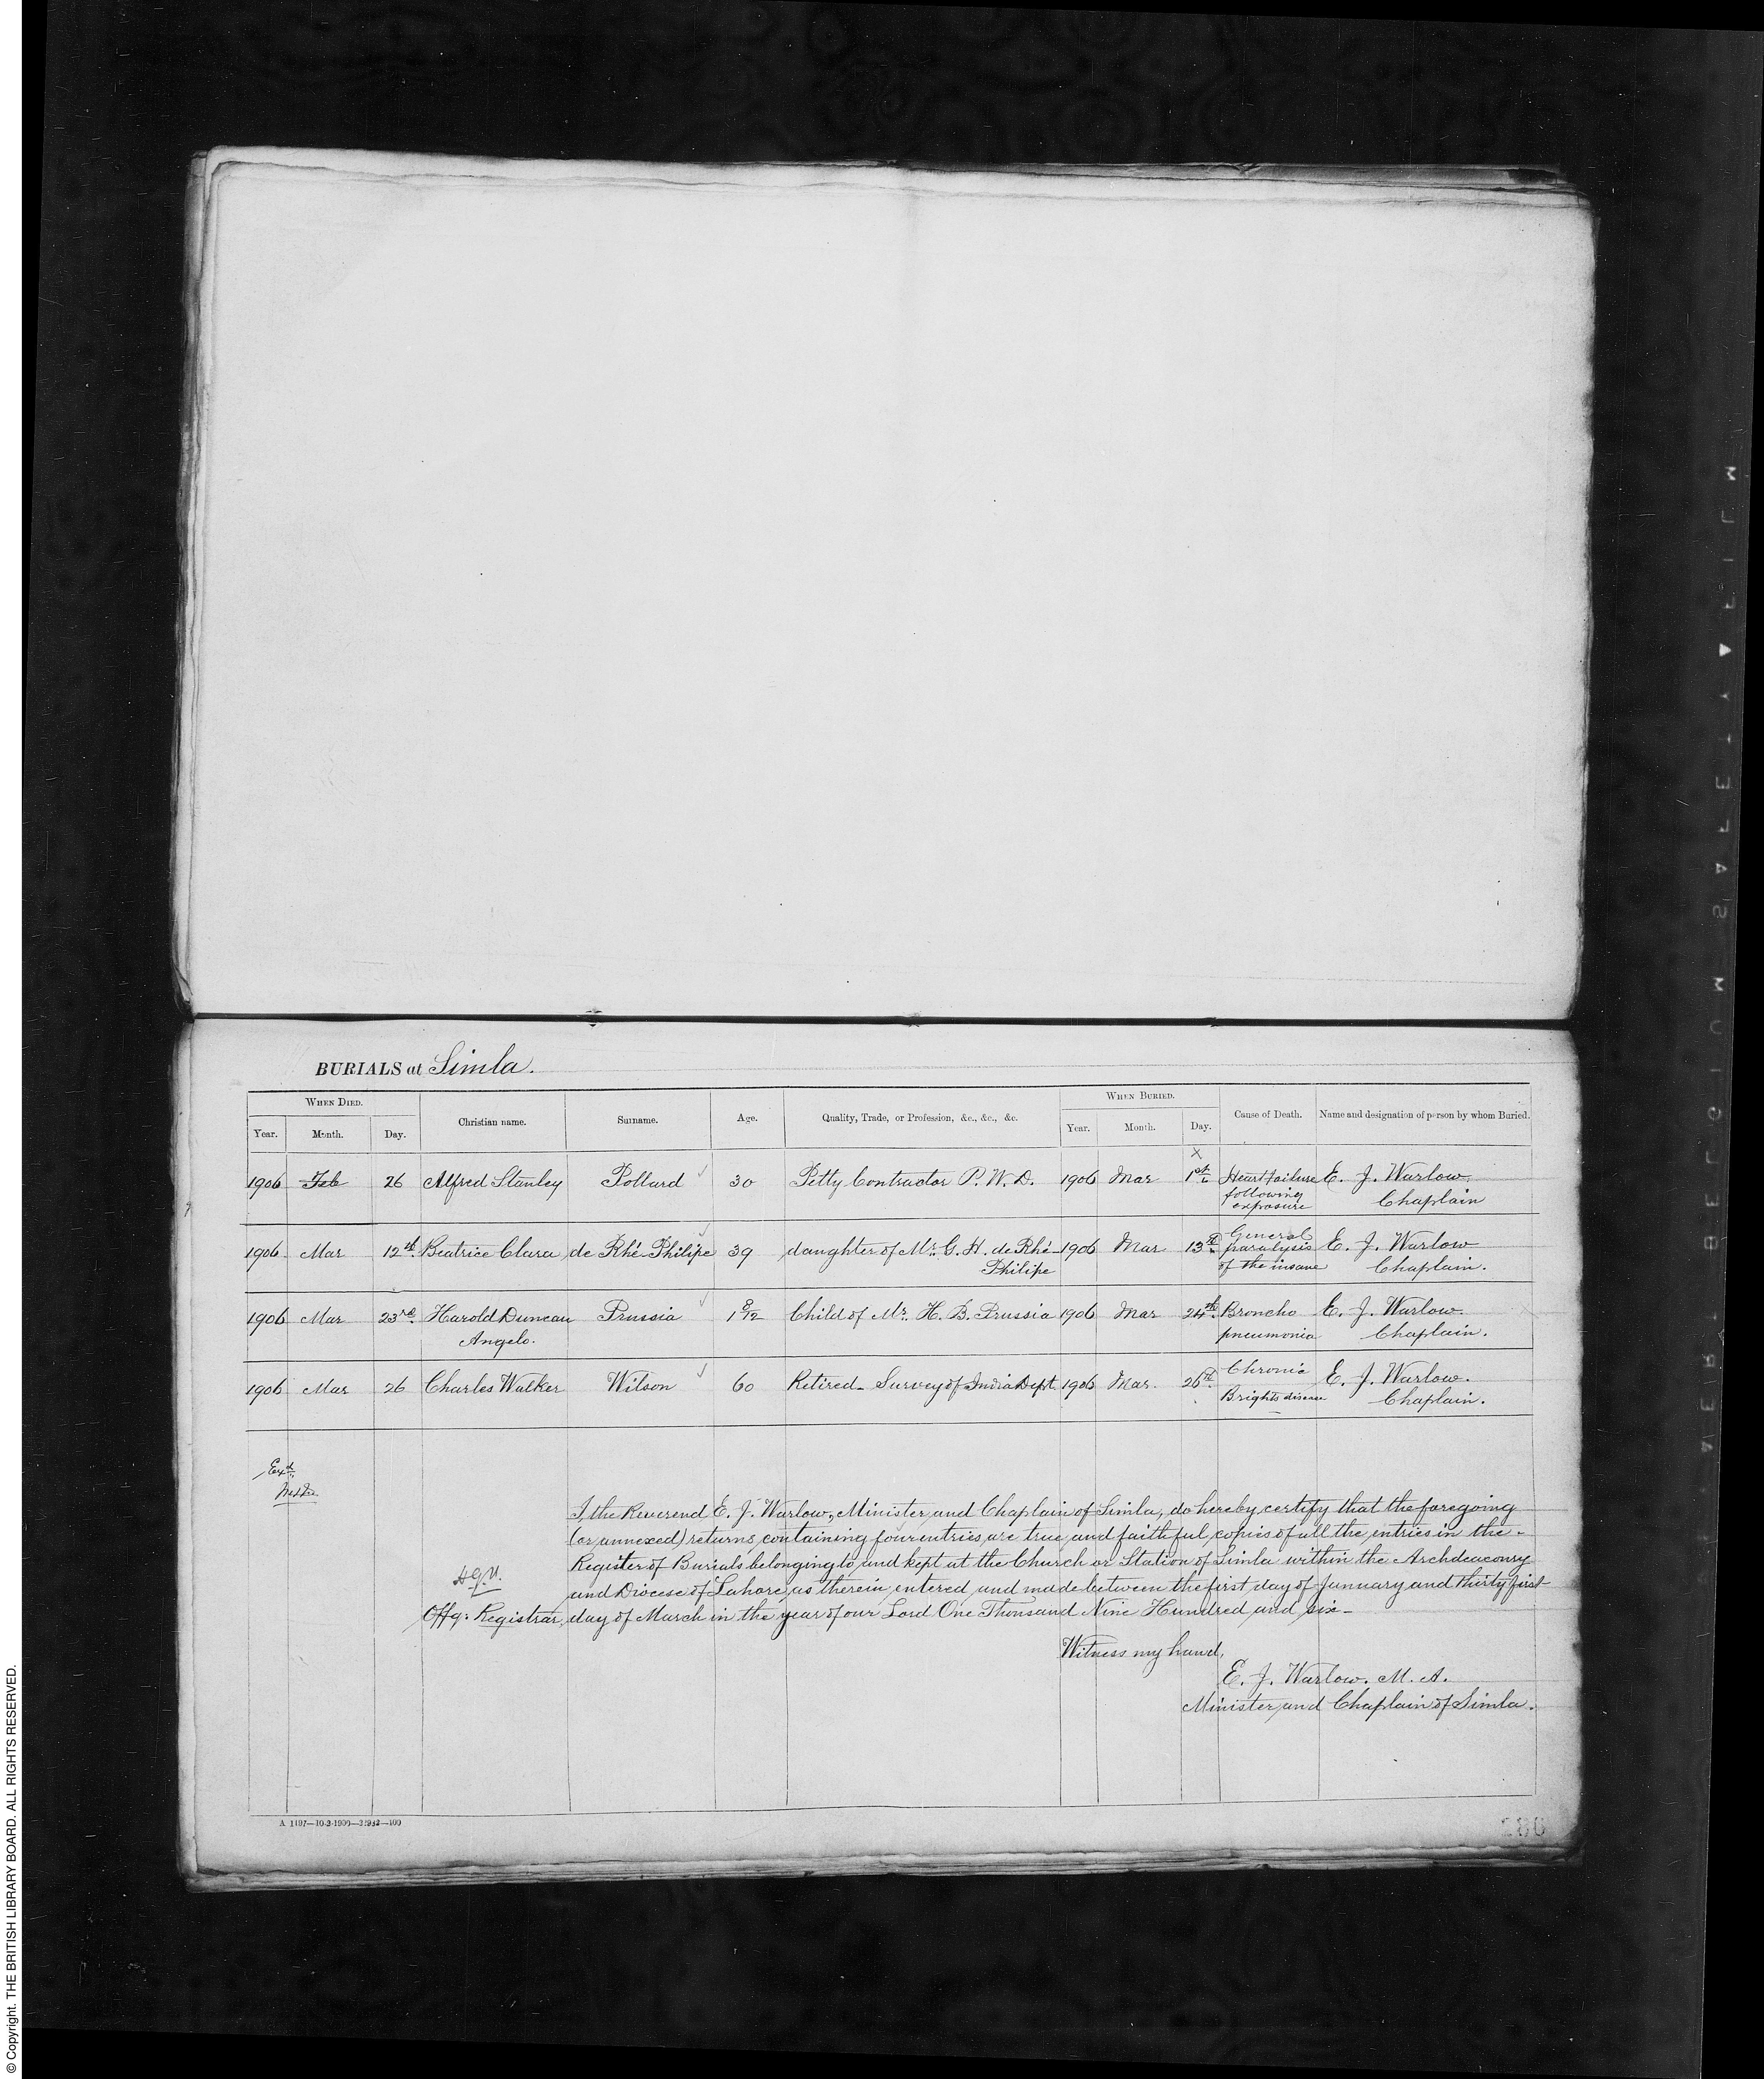 BURIALS at Simla.
WHEN DIED. Christian name. Surname. Age. Quality, Trade, or Profession, &c., &c., &c. WHEN BURIED. Cause of Death. Name and designation of person by whom Buried.
Year. Month. Day. Year. Month. Day.
X
1906 Feb 26 Alfred Stanley Pollard 30 Petty Contractor P.W.D. 1906 Mar 1st Heart failure E. J. Warlow.
following Chaplain
exposure
1906 Mar 12th Beatrice Clara de Rhé-Philipe 39 daughter of Mr. G. H. de Rhé- 1906 Mar 13th General E. J. Warlow
Philipe paralysis Chaplain.
of the insane
1906 Mar 23rd Harold Duncan Prussia 1 8/12 Child of Mr. H. B. Prussia 1906 Mar 24th Broncho E. J. Warlow.
Angelo. pneumonia Chaplain.
1906 Mar 26 Charles Walker Wilson 60 Retired Survey of India Dept 1906 Mar. 26th Chronic E. J. Warlow.
Brights disease Chaplain.
Exd
I the Reverend E. J. Warlow, Minister and Chaplain of Simla, do hereby certify that the foregoing
(or annexed) returns, containing four entries are true and faithful copies of all the entries in the
Register of Burials belonging to and kept at the Church or Station of Simla within the Archdeaconry
and Diocese of Lahore, as therein entered and made between the first day of January and thirty first
Offg: Registrar, day of March in the year of our Lord One Thousand Nine Hundred and six
Witness my hand,
E. J. Warlow. M. A.
Minister and Chaplain of Simla.
280
© Copyright. THE BRITISH LIBRARY BOARD. ALL RIGHTS RESERVED.